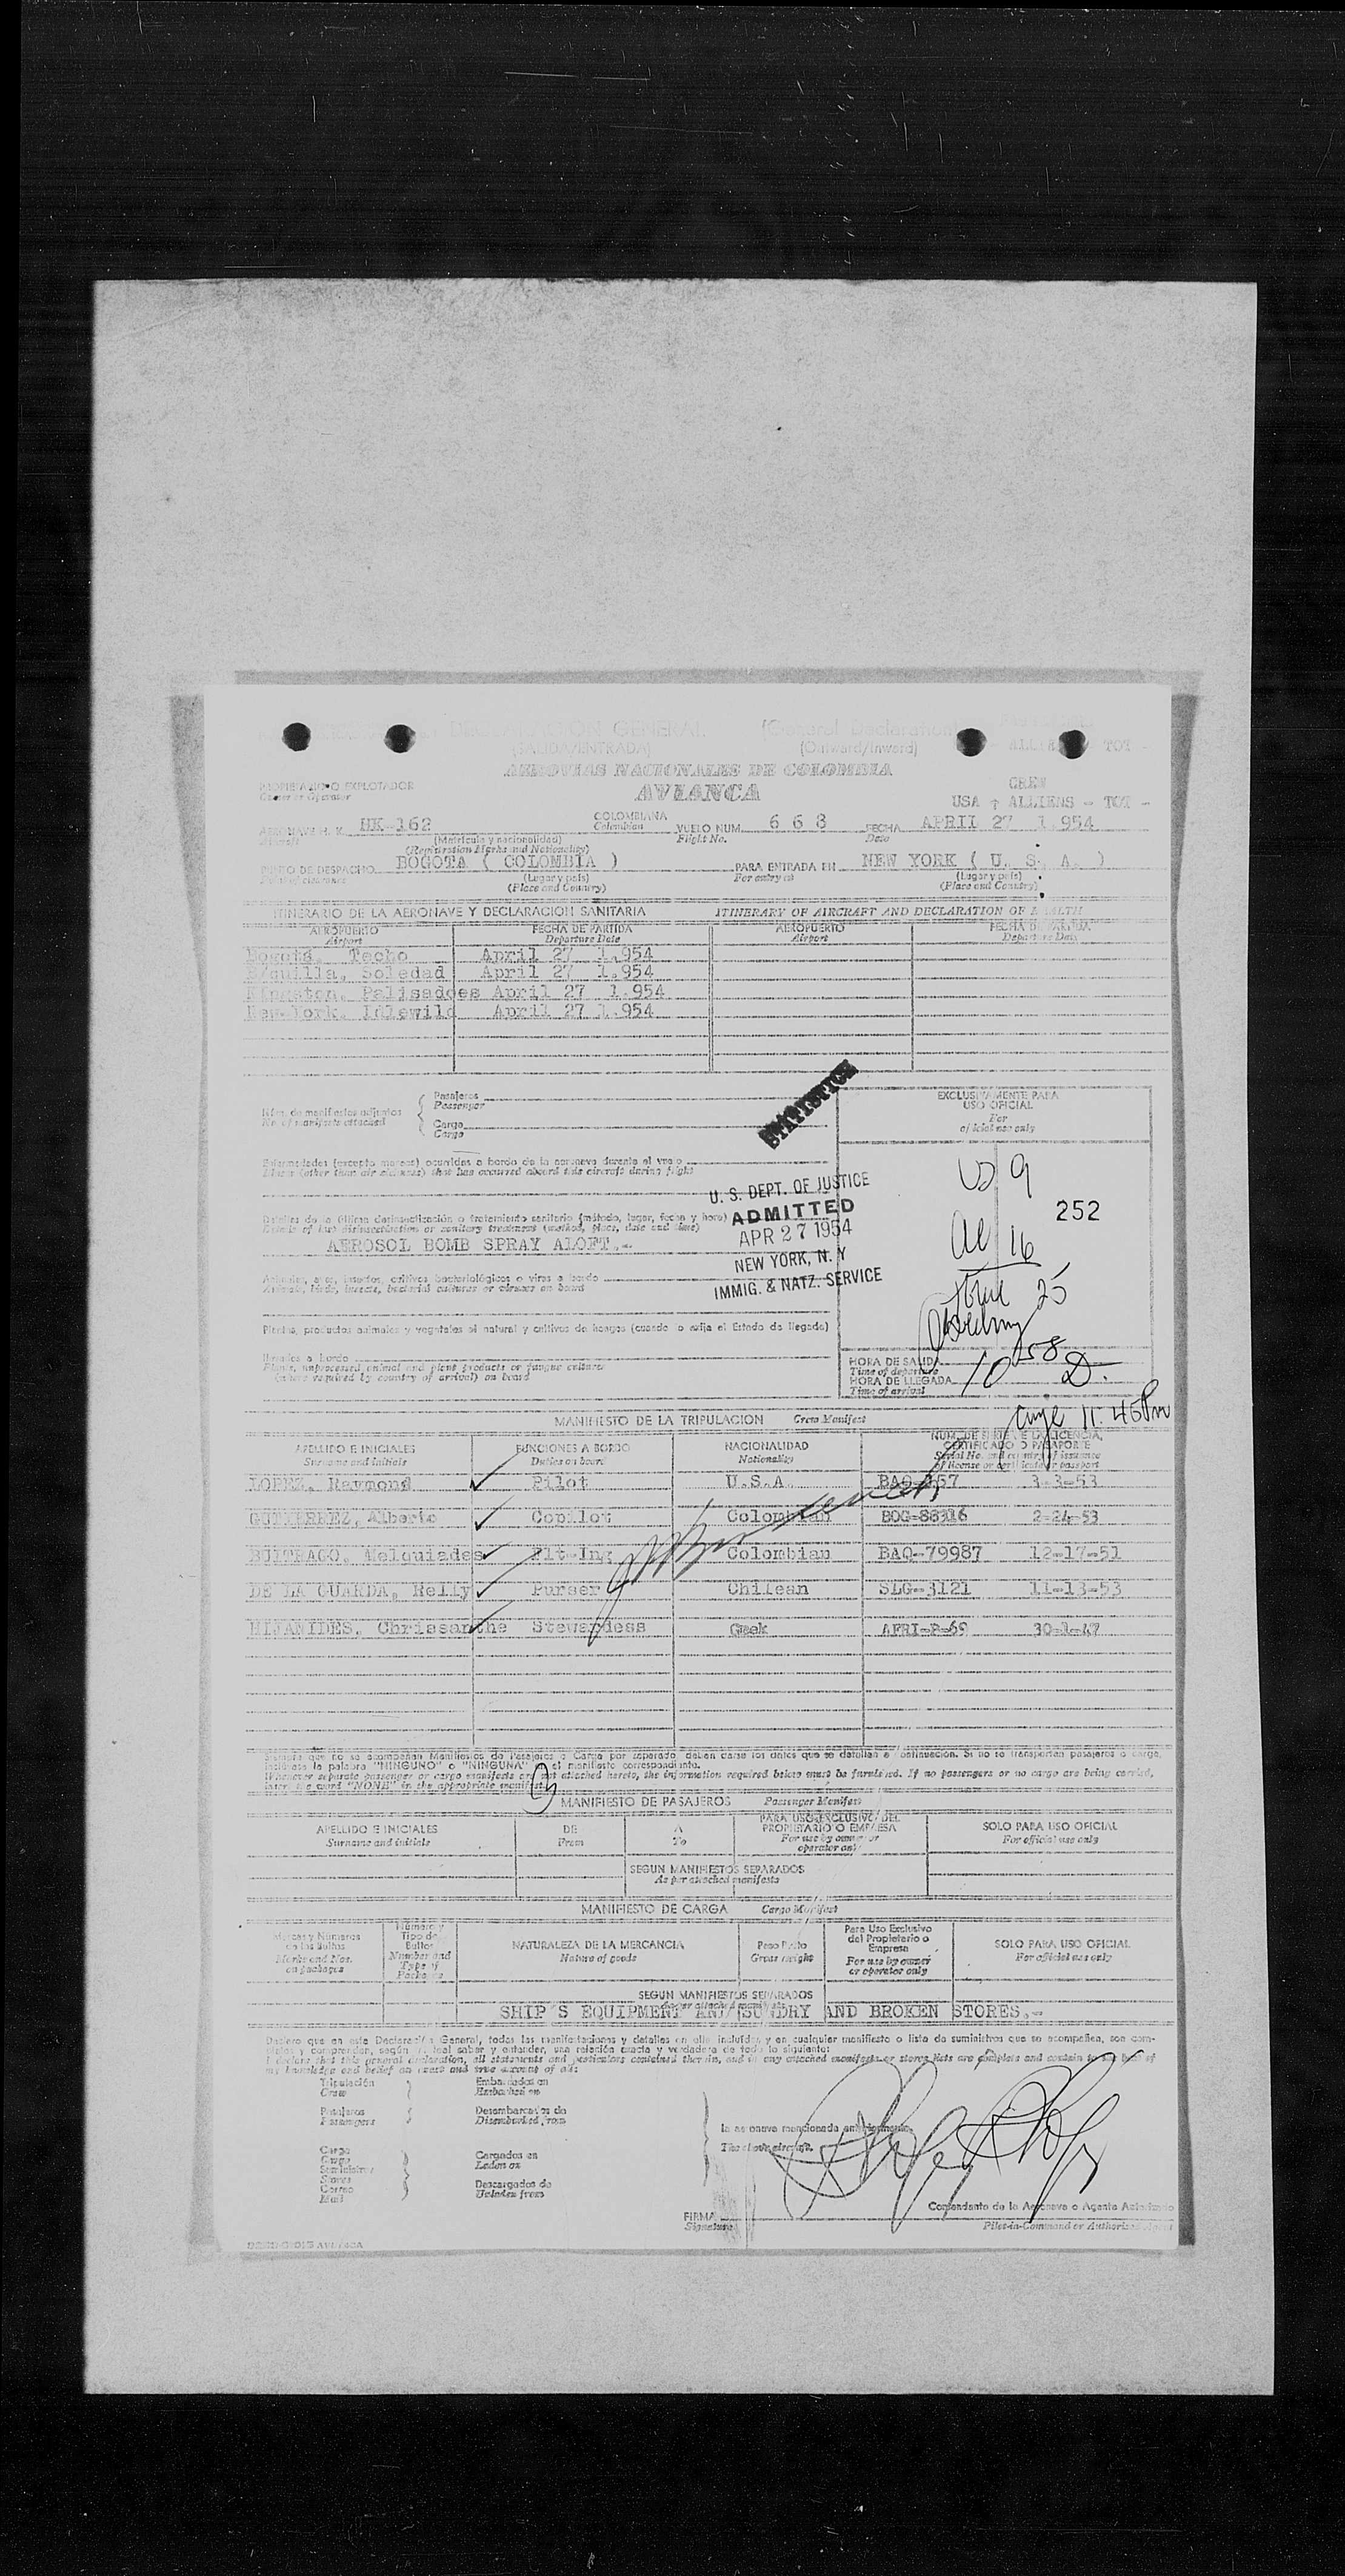 DECLARACION GENERAL (General Declaration)
(SALIDA/ENTRADA) (Outward/Inward)
AEROVIAS NACIONALES DE COLOMBIA
AVIANCA
PROPIETARIO O EXPLOTADOR
Owner or Operator
CREW
USA - ALLIENS - TOT -
AERONAVE H. K. HK-162 COLOMBIANA VUELO NUM. 668 FECHA APRIL 27 1.954
Aircraft (Matrícula y nacionalidad) Colombian Flight No. Date
(Registration Marks and Nationality)
PUNTO DE DESPACHO BOGOTA ( COLOMBIA ) PARA ENTRADA EN NEW YORK ( U. S. A. )
(Lugar y país) For entry at (Lugar y país)
(Place and Country) (Place and Country)
ITINERARIO DE LA AERONAVE Y DECLARACION SANITARIA ITINERARY OF AIRCRAFT AND DECLARATION OF HEALTH
AEROPUERTO FECHA DE PARTIDA AEROPUERTO FECHA DE PARTIDA
Airport Departure Date Airport Departure Date
Bogotá, Techo April 27 1.954
B/quilla, Soledad April 27 1.954
Kingston, Palisadoes April 27 1.954
New-York, Idlewild April 27 1.954
STATISTICS
Núm. de manifiestos adjuntos Pasajeros
No. of manifests attached Passenger
Cargo
Cargo
EXCLUSIVAMENTE PARA
USO OFICIAL
For
official use only
Enfermedades (excepto mareos) ocurridas a bordo de la aeronave durante el vuelo
Illness (other than air sickness) that has occurred aboard this aircraft during flight
US 9
252
Al 16
Total 25
U. S. DEPT. OF JUSTICE
ADMITTED
APR 27 1954
NEW YORK, N. Y
IMMIG. & NATZ. SERVICE
Detalles de la última desinsectización o tratamiento sanitario (método, lugar, fecha y hora)
Details of last disinsectization or sanitary treatment (method, place, date and time)
AEROSOL BOMB SPRAY ALOFT.-
Animales, aves, insectos, cultivos bacteriológicos o virus a bordo
Animals, birds, insects, bacterial cultures or viruses on board
Plantas, productos animales y vegetales al natural y cultivos de hongos (cuando lo exija el Estado de llegada)
llevados a bordo
Plants, unprocessed animal and plant products or fungus cultures
(where required by country of arrival) on board
HORA DE SALIDA
Time of departure
HORA DE LLEGADA 10 58 D.
Time of arrival
11:45 Pm
MANIFIESTO DE LA TRIPULACION Crew Manifest
APELLIDO E INICIALES FUNCIONES A BORDO NACIONALIDAD NUM. DE SERIE DE LA LICENCIA, CERTIFICADO O PASAPORTE
Surname and initials Duties on board Nationality Serial No. and country of issuance of license or certificate or passport
LOPEZ, Raymond Pilot U.S.A. BAQ-157 3-3-53
GUTIERREZ, Alberto Copilot Colombian BOG-88316 2-24-53
BUITRAGO, Melquiades Flt-Ing Colombian BAQ-79987 12-17-51
DE LA GUARDA, Relly Purser Chilean SLG-3121 11-13-53
HIJAMIDES, Chrissanthe Stewardess Geek AFRI-P-69 30-1-47
Siempre que no se acompañen Manifiestos de Pasajeros o Carga por separado, deben darse los datos que se detallan a continuación. Si no se transportan pasajeros o carga,
insértese la palabra "NINGUNO" o "NINGUNA" en el manifiesto correspondiente.
Whenever separate passenger or cargo manifests are not attached hereto, the information required below must be furnished. If no passengers or no cargo are being carried,
insert the word "NONE" in the appropriate manifest.
MANIFIESTO DE PASAJEROS Passenger Manifest
APELLIDO E INICIALES DE A PARA USO EXCLUSIVO DEL PROPIETARIO O EMPRESA SOLO PARA USO OFICIAL
Surname and initials From To For use by owner or operator only For official use only
SEGUN MANIFIESTOS SEPARADOS
As per attached manifests
MANIFIESTO DE CARGA Cargo Manifest
Marcas y Números de los Bultos Número y Tipo de Bultos NATURALEZA DE LA MERCANCIA Peso Bruto Para Uso Exclusivo del Propietario o Empresa SOLO PARA USO OFICIAL
Marks and Nos. on packages Number and Type of Packages Nature of goods Gross weight For use by owner or operator only For official use only
SEGUN MANIFIESTOS SEPARADOS
As per attached manifests
SHIP'S EQUIPMENT AND SUNDRY AND BROKEN STORES.-
Declaro que en esta Declaración General, todas las manifestaciones y detalles en ella incluidos y en cualquier manifiesto o lista de suministros que se acompañen, son completos
y comprenden, según mi leal saber y entender, una relación exacta y verdadera de todo lo siguiente:
I declare that this general declaration, all statements and particulars contained therein, and in any attached manifests or stores lists are complete and contain to the best of
my knowledge and belief an exact and true account of all:
Tripulación Embarcados en
Crew Embarked on
Pasajeros Desembarcados de
Passengers Disembarked from
la aeronave mencionada anteriormente
The above aircraft.
Cargo Cargados en
Cargo Laden on
Suministros
Stores Descargados de
Correo Unladen from
Mail
Comandante de la Aeronave o Agente Autorizado
FIRMA
Signature Pilot-in-Command or Authorized Agent